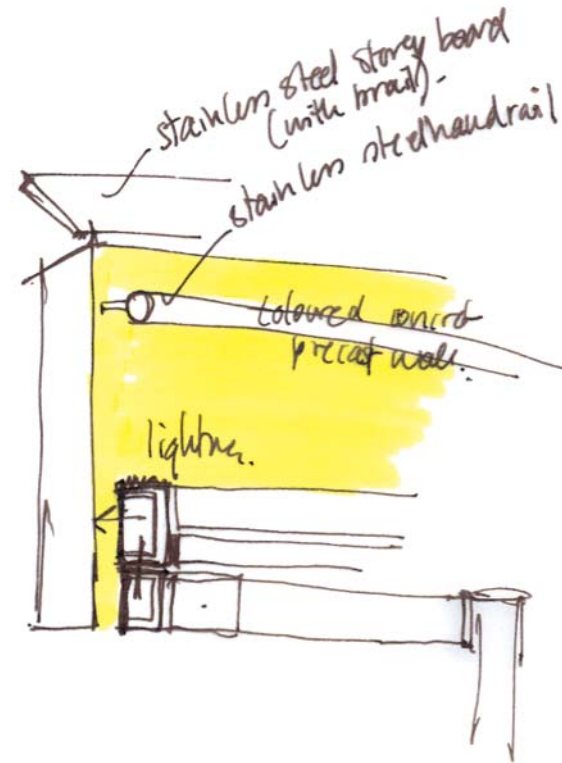 stainless steel storey board
(with brail).
stainless steel handrail
coloured concrt
precast wall.
lighting.